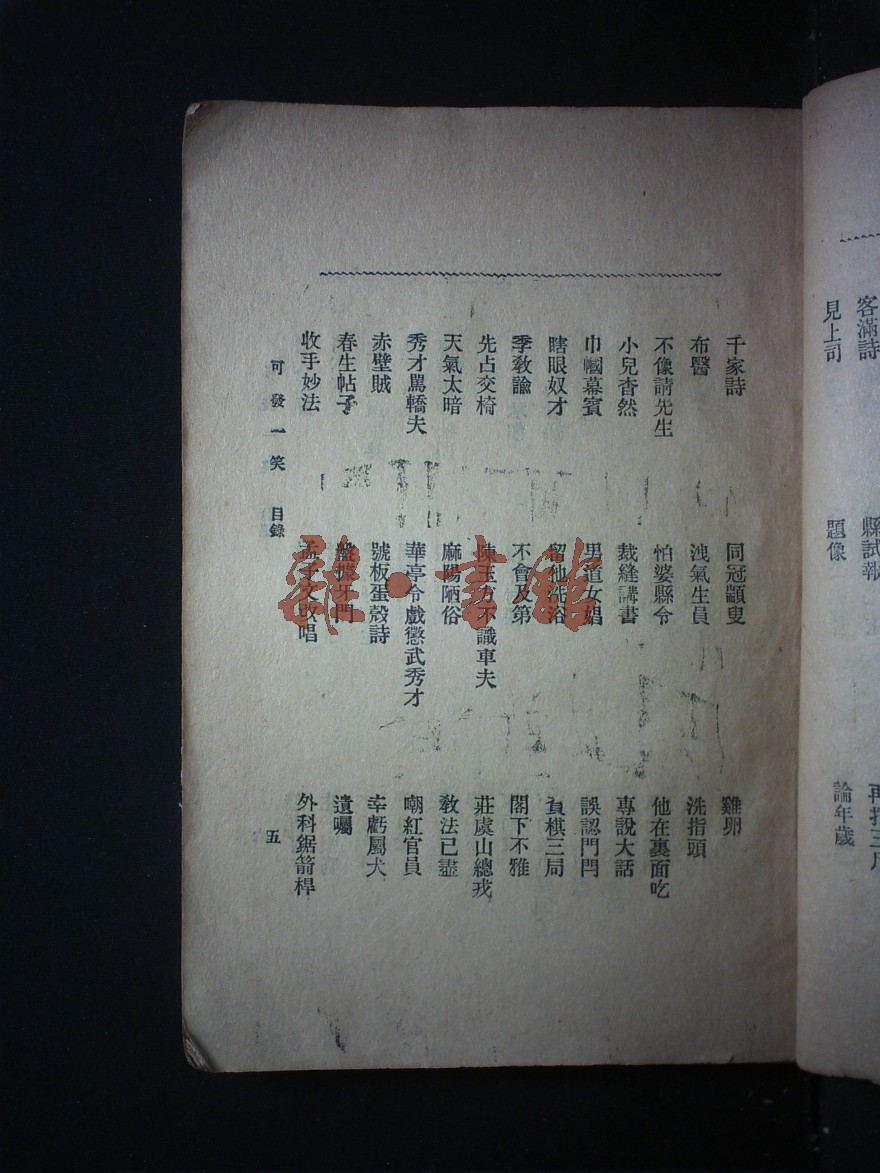 千家詩
同冠顓叟
雞卵
布醫
洩氣生員
洗指頭
不像請先生
怕婆縣令
他在裏面吃
小兒杳然
裁縫講書
專說大話
巾幗幕賓
男道女娼
誤認門閂
瞎眼奴才
留他洗浴
負棋三局
季敎諭
不會及第
閣下不雅
先占交椅
陳玉方不識車夫
莊虞山總戎
天氣太暗
麻陽陋俗
敎法已盡
秀才罵轎夫
華亭令戲懲武秀才
嘲紅官員
赤壁賊
號板蛋殼詩
幸虧屬犬
春生帖子
盤據牙門
遺囑
收手妙法
孟子文改唱
外科鋸箭桿
可發一笑 目錄
五
客滿詩
縣試報
見上司
題像
論年歲
雜·書館